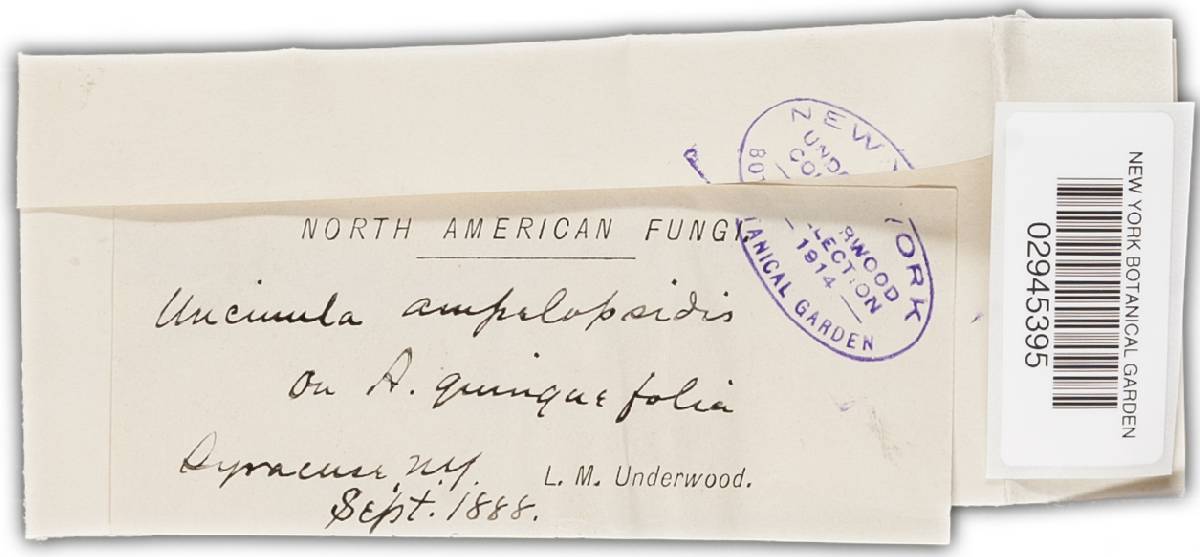 NORTH AMERICAN FUNGI.
Uncinula ampelopsidis
on A. quinquefolia
Syracuse, N.Y.
L. M. Underwood.
Sept. 1888.
NEW YORK
BOTANICAL GARDEN
UNDERWOOD
COLLECTION
— 1914 —
NEW YORK BOTANICAL GARDEN
02945395